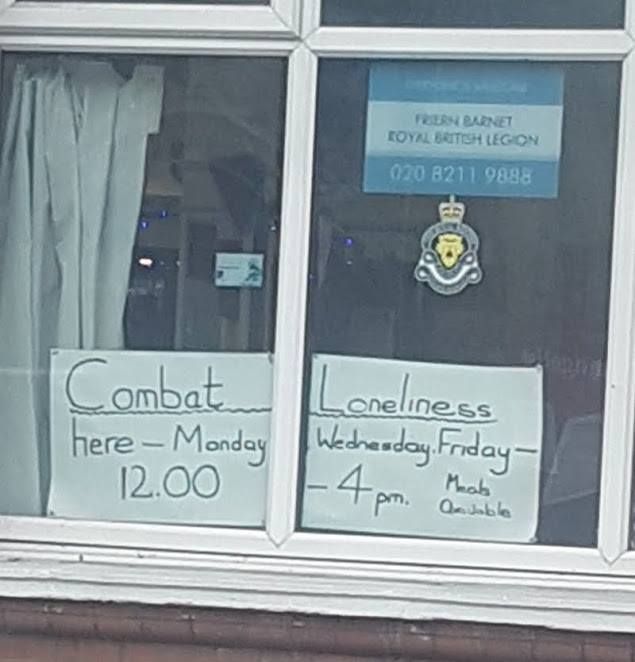 FRIERN BARNET
ROYAL BRITISH LEGION
020 8211 9888
Combat Loneliness
here – Monday Wednesday. Friday –
12.00 – 4 pm. Meals
Available